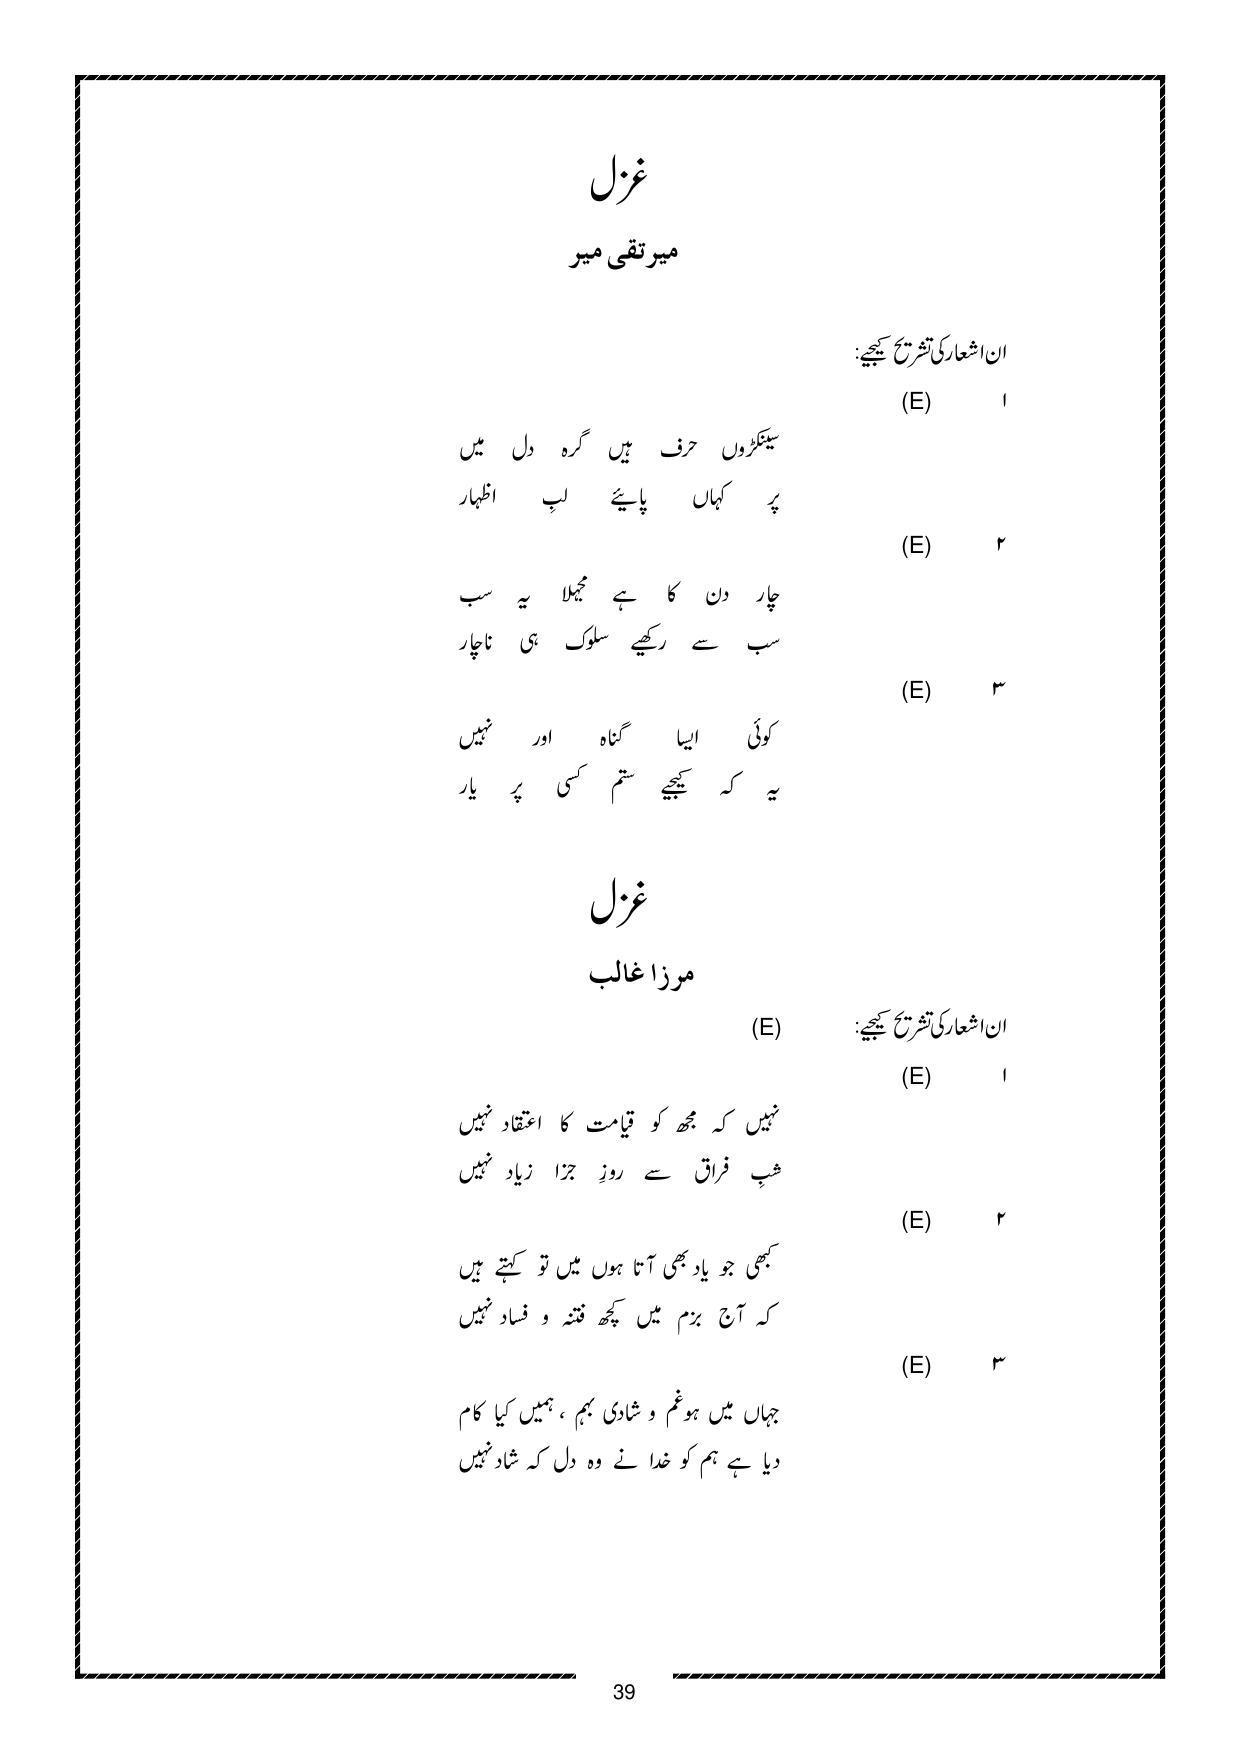 غزل
میر تقی میر
ان اشعار کی تشریح کیجیے:
۱ (E)
سینکڑوں حرف ہیں گرہ دل میں
پر کہاں پایئے لبِ اظہار
۲ (E)
چار دن کا ہے مجہلا یہ سب
سب سے رکھیے سلوک ہی ناچار
۳ (E)
کوئی ایسا گناہ اور نہیں
یہ کہ کیجیے ستم کسی پر یار
غزل
مرزا غالب
ان اشعار کی تشریح کیجیے: (E)
۱ (E)
نہیں کہ مجھ کو قیامت کا اعتقاد نہیں
شبِ فراق سے روزِ جزا زیاد نہیں
۲ (E)
کبھی جو یاد بھی آتا ہوں میں تو کہتے ہیں
کہ آج بزم میں کچھ فتنہ و فساد نہیں
۳ (E)
جہاں میں ہو غم و شادی بہم، ہمیں کیا کام
دیا ہے ہم کو خدا نے وہ دل کہ شاد نہیں
39